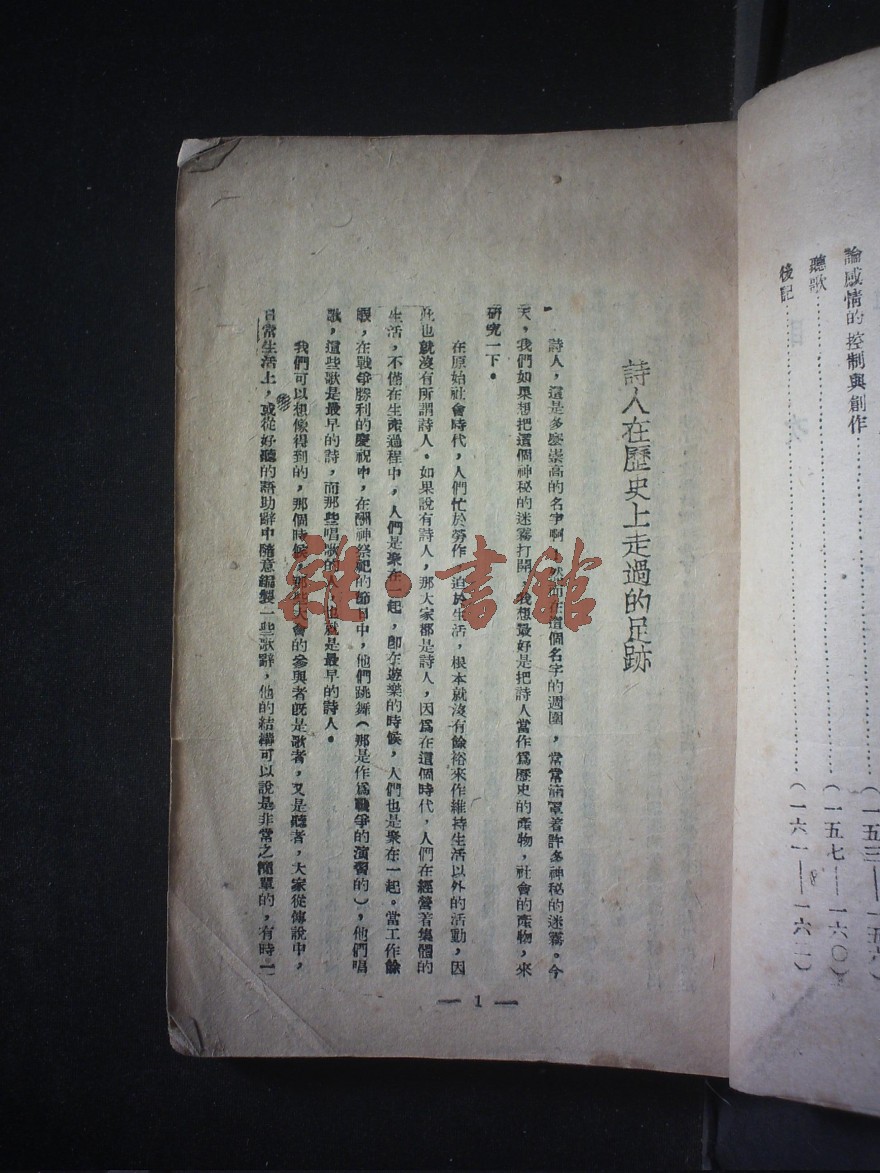 論感情的控制與創作……………………(一五三——一五六)
聽歌……………………(一五七——一六〇)
後記……………………(一六一——一六二)
詩人在歷史上走過的足跡
詩人,這是多麼崇高的名字啊!然而在這個名字的週圍,常常滿罩著許多神秘的迷霧。今
天,我們如果想把這個神秘的迷霧打開,我想最好是把詩人當作爲歷史的產物,社會的產物,來
研究一下。
在原始社會時代,人們忙於勞作,迫於生活,根本就沒有餘裕來作維持生活以外的活動,因
此也就沒有所謂詩人。如果說有詩人,那大家都是詩人,因爲在這個時代,人們在經營著集體的
生活,不僅在生產過程中,人們是聚在一起,卽在遊樂的時候,人們也是聚在一起。當工作餘
暇,在戰爭勝利的慶祝中,在酬神祭祀的節日中,他們跳舞(那是作爲戰爭的演習的),他們唱
歌,這些歌是最早的詩,而那些唱歌的人,也就是最早的詩人。
我們可以想像得到的,那個時候,那些大會的參與者旣是歌者,又是聽者,大家從傳說中,
日常生活上,或從好聽的語助辭中隨意編製一些歌辭,他的結構可以說是非常之簡單的,有時一
— 1 —
雜·書館